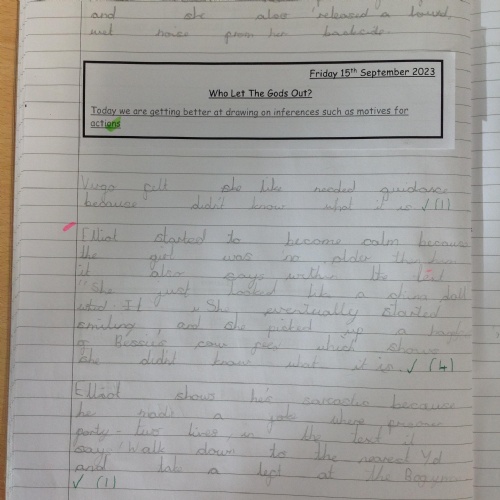 and she also released a loud,
wet noise from her backside.
Friday 15th September 2023
Who Let The Gods Out?
Today we are getting better at drawing on inferences such as motives for
actions
Virgo felt she like needed guidance
because didn't know what it is ✓ (1)
Elliot started to become calm because
the girl was no older then him
it also says within the text
"She just looked like a doll
She eventually started
smiling, and she picked up a
of Bessies cow poo which shows
she didn't know what it is. ✓ (4)
Elliot shows his sarcasm because
he made a joke where
party-two lines, in the text it
say "Walk down to the nearest Yd
and take a left at the
✓ (1)